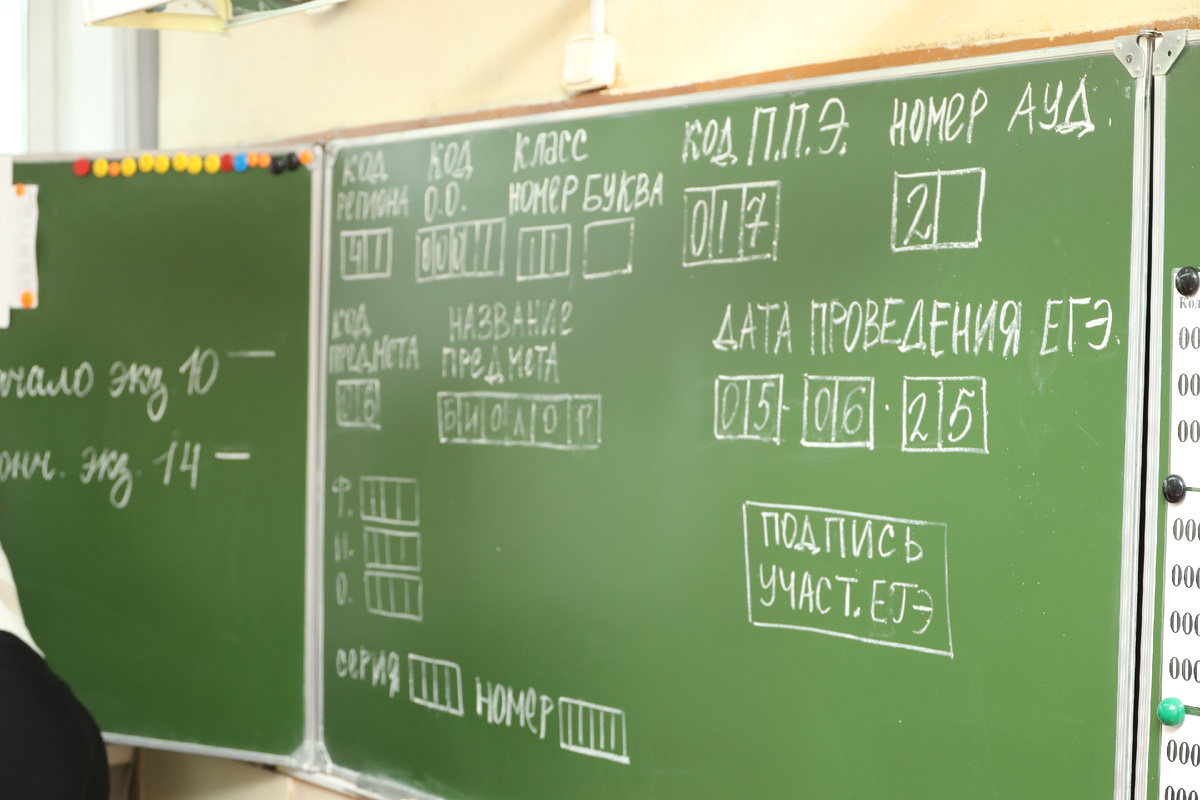 начало экз. 10 —
онч. экз. 14 —
КОД РЕГИОНА
41
КОД О.О.
0001
КЛАСС
НОМЕР БУКВА
11
КОД П.П.Э.
017
НОМЕР АУД.
2
КОД ПРЕДМЕТА
06
НАЗВАНИЕ ПРЕДМЕТА
БИОЛОГ
ДАТА ПРОВЕДЕНИЯ ЕГЭ.
05.06.25
Ф.
И.
О.
ПОДПИСЬ
УЧАСТ. ЕГЭ
СЕРИЯ
НОМЕР
Код